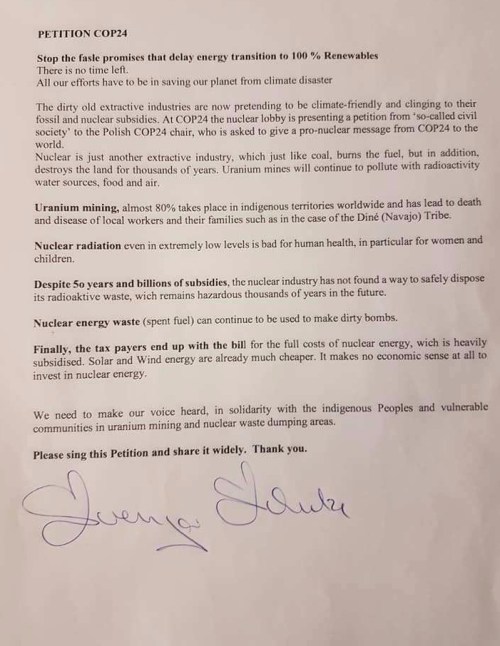 PETITION COP24
Stop the fasle promises that delay energy transition to 100 % Renewables
There is no time left.
All our efforts have to be in saving our planet from climate disaster
The dirty old extractive industries are now pretending to be climate-friendly and clinging to their
fossil and nuclear subsidies. At COP24 the nuclear lobby is presenting a petition from ‘so-called civil
society’ to the Polish COP24 chair, who is asked to give a pro-nuclear message from COP24 to the
world.
Nuclear is just another extractive industry, which just like coal, burns the fuel, but in addition,
destroys the land for thousands of years. Uranium mines will continue to pollute with radioactivity
water sources, food and air.
Uranium mining, almost 80% takes place in indigenous territories worldwide and has lead to death
and disease of local workers and their families such as in the case of the Diné (Navajo) Tribe.
Nuclear radiation even in extremely low levels is bad for human health, in particular for women and
children.
Despite 5o years and billions of subsidies, the nuclear industry has not found a way to safely dispose
its radioaktive waste, wich remains hazardous thousands of years in the future.
Nuclear energy waste (spent fuel) can continue to be used to make dirty bombs.
Finally, the tax payers end up with the bill for the full costs of nuclear energy, wich is heavily
subsidised. Solar and Wind energy are already much cheaper. It makes no economic sense at all to
invest in nuclear energy.
We need to make our voice heard, in solidarity with the indigenous Peoples and vulnerable
communities in uranium mining and nuclear waste dumping areas.
Please sing this Petition and share it widely. Thank you.